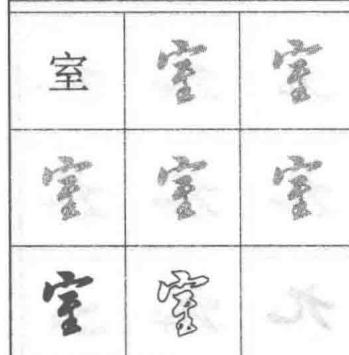 室 室 室
室 室 室
室 室